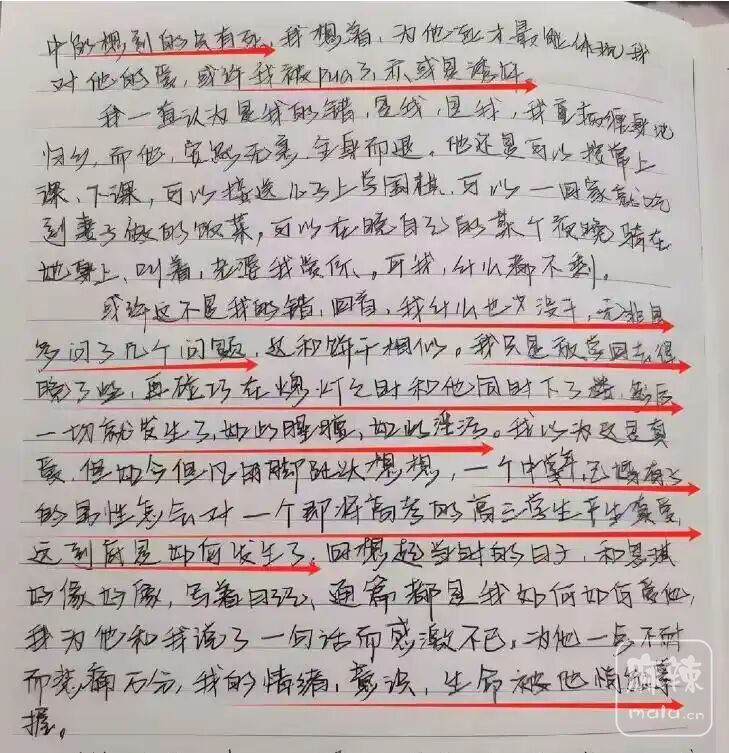 中的想到的只有死。我想着,为他死才最能体现我
对他的爱,或许我被pua了,亦或是活该。
我一直认为是我的错,是我,是我,我重
归乡,而他,安然无恙,全身而退。他还是可以按常上
课、下课,可以接送儿子上学围棋,可以一回家就吃
到妻子做的饭菜,可以在晚自习的某个夜晚骑在
她身上,叫着,老婆我爱你、可我,什么都不剩。
或许这不是我的错,回首,我什么也没干,无非是
多问了几个问题,这和饼干相似。我只是放学回去得
晚了些,再碰巧在熄灯之时和他同时下了楼,然后
一切就发生了,如此腥膻,如此淫污。我以为这是真
爱,但如今但凡用脚趾头想想,一个中年,已婚有子
的男性怎会对一个即将高考的高三学生产生真爱,
这到底是如何发生了,回想起当时的日子,和思琪
好像好像,写着日记,通篇都是我如何如何爱他,
我为他和我说了一句话而感激不已,为他一点不耐
而悲痛万分,我的情绪,意识,生命被他悄然掌
握。
麻辣
mala.cn